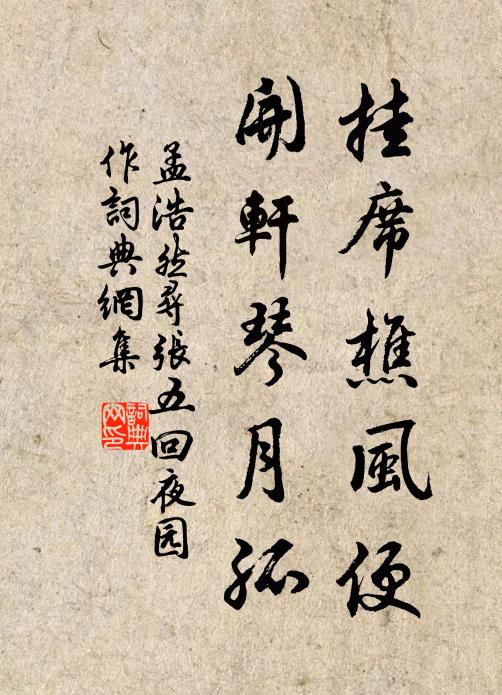 挂席樵風便
開軒琴月孤
孟浩然尋張五回夜园
作詞典網集
詞典
网印